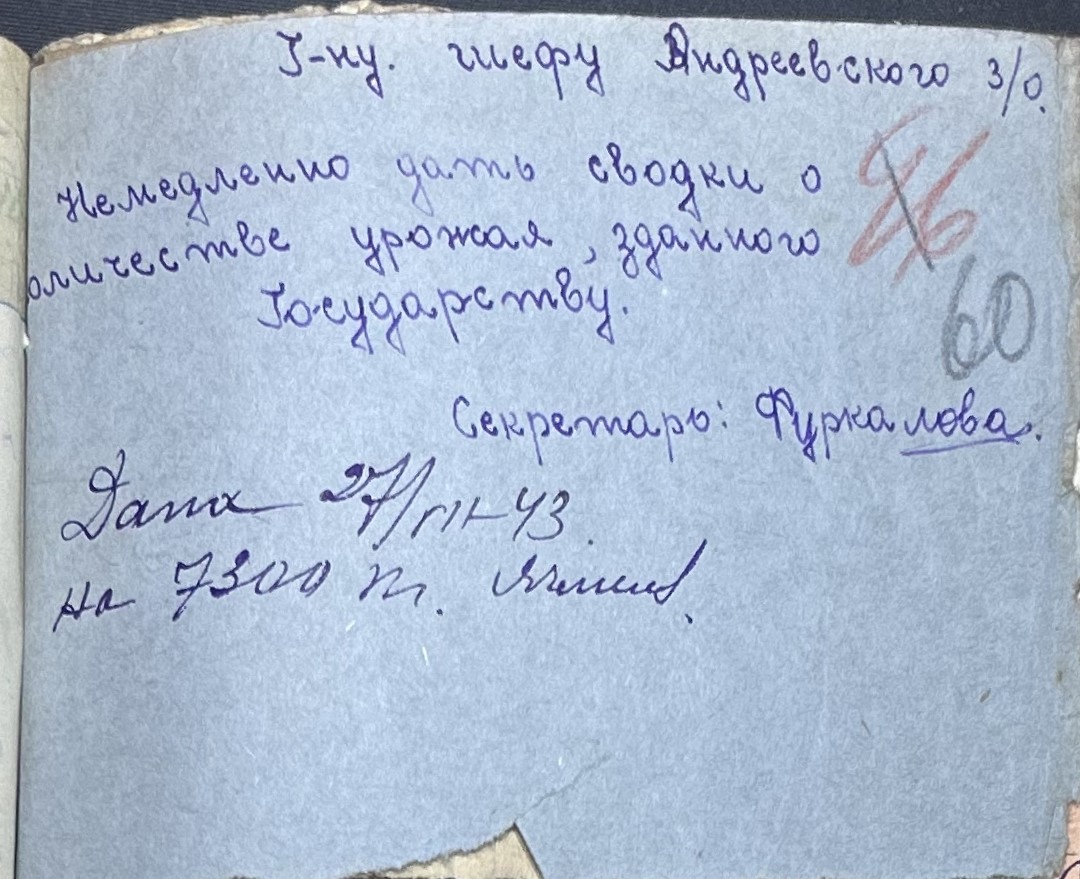 Г-ну. шефу Андреевского з/о.
Немедленно дать сводки о
оличестве урожая, зданного
Государству.
86
60
Секретарь: Фуркалова.
Дана 27/VII-43.
на 7300 т.